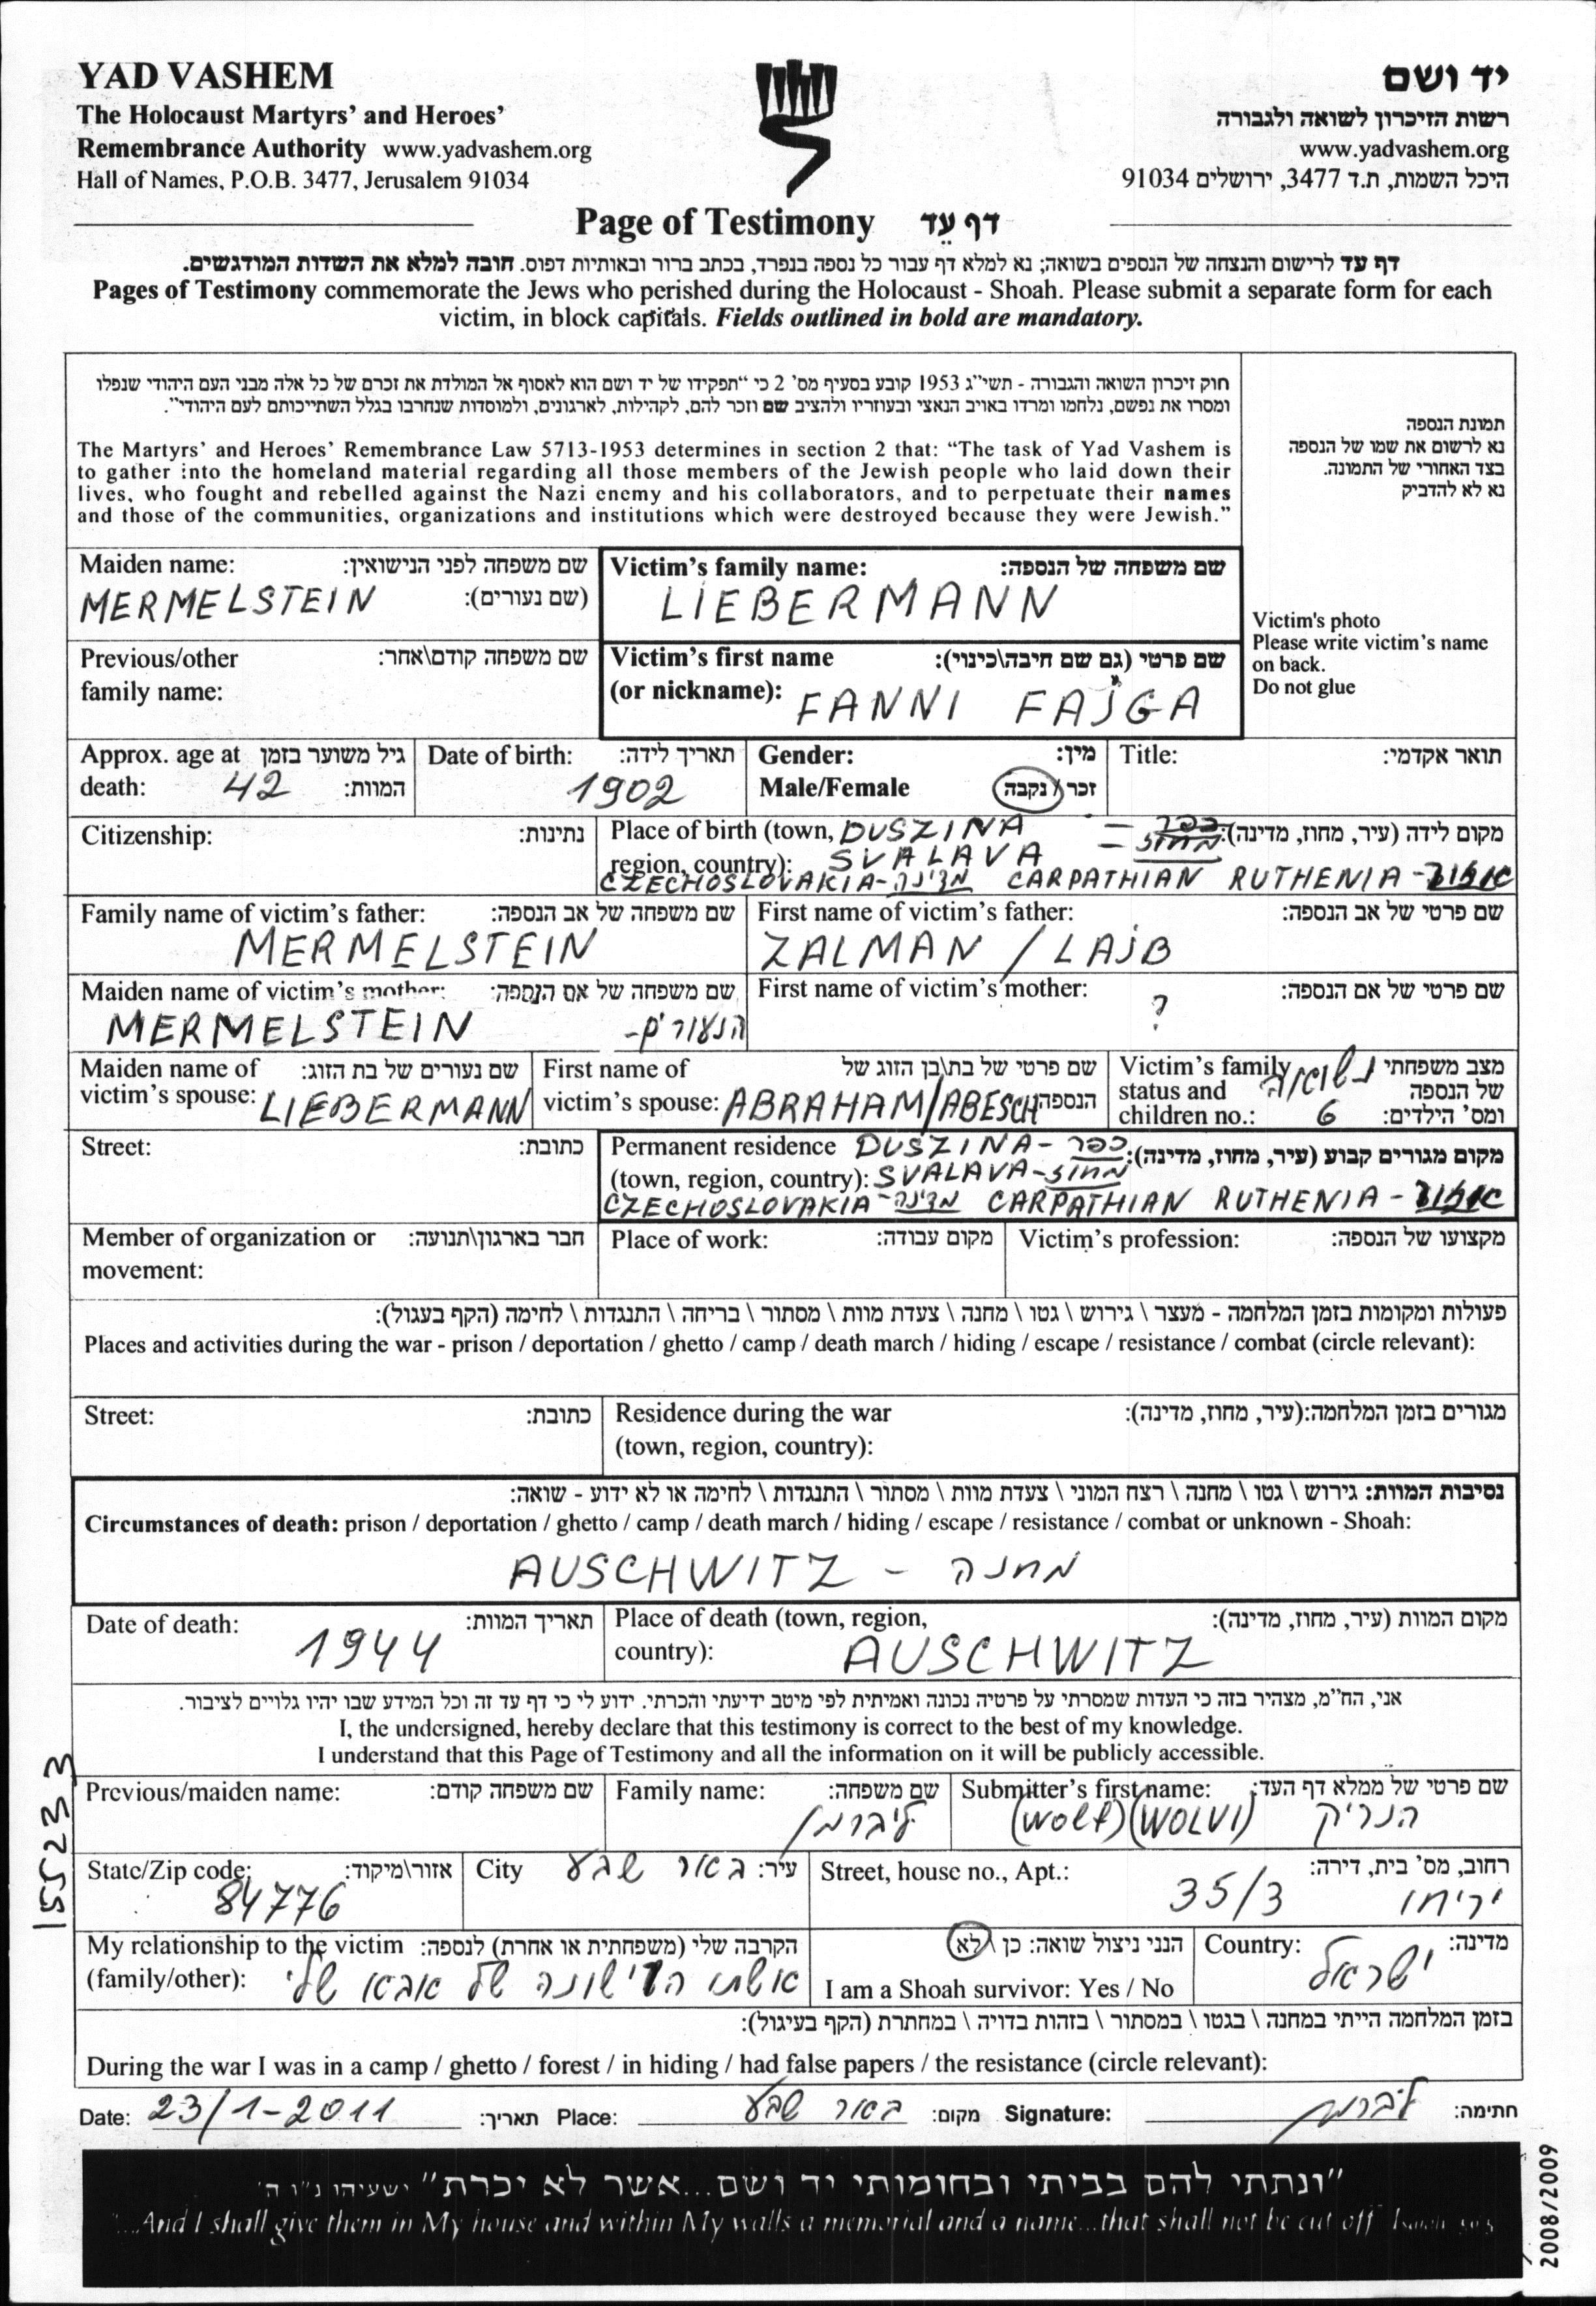 YAD VASHEM
יד ושם
The Holocaust Martyrs' and Heroes'
רשות הזיכרון לשואה ולגבורה
Remembrance Authority www.yadvashem.org
www.yadvashem.org
Hall of Names, P.O.B. 3477, Jerusalem 91034
היכל השמות, ת.ד 3477, ירושלים 91034
Page of Testimony דף עֵד
דף עד לרישום והנצחה של הנספים בשואה; נא למלא דף עבור כל נספה בנפרד, בכתב ברור ובאותיות דפוס. חובה למלא את השדות המודגשים.
Pages of Testimony commemorate the Jews who perished during the Holocaust - Shoah. Please submit a separate form for each
victim, in block capitals. Fields outlined in bold are mandatory.
חוק זיכרון השואה והגבורה - תשי"ג 1953 קובע בסעיף מס' 2 כי "תפקידו של יד ושם הוא לאסוף אל המולדת את זכרם של כל אלה מבני העם היהודי שנפלו
ומסרו את נפשם, נלחמו ומרדו באויב הנאצי ובעוזריו ולהציב שם וזכר להם, לקהילות, לארגונים, ולמוסדות שנחרבו בגלל השתייכותם לעם היהודי".
The Martyrs' and Heroes' Remembrance Law 5713-1953 determines in section 2 that: "The task of Yad Vashem is
to gather into the homeland material regarding all those members of the Jewish people who laid down their
lives, who fought and rebelled against the Nazi enemy and his collaborators, and to perpetuate their names
and those of the communities, organizations and institutions which were destroyed because they were Jewish."
תמונת הנספה
נא לרשום את שמו של הנספה
בצד האחורי של התמונה.
נא לא להדביק
Victim's photo
Please write victim's name
on back.
Do not glue
Maiden name: שם משפחה לפני הנישואין:
MERMELSTEIN (שם נעורים):
Victim's family name: שם משפחה של הנספה:
LIEBERMANN
Previous/other שם משפחה קודם\אחר:
family name:
Victim's first name שם פרטי (גם שם חיבה\כינוי):
(or nickname): FANNI FAJGA
Approx. age at גיל משוער בזמן
death: 42 המוות:
Date of birth: תאריך לידה:
1902
Gender: מין:
Male/Female זכר / נקבה
Title: תואר אקדמי:
Citizenship: נתינות:
Place of birth (town, DUSZINA – כפר מקום לידה (עיר, מחוז, מדינה):
region, country): SVALAVA – מחוז
CZECHOSLOVAKIA-מדינה CARPATHIAN RUTHENIA-
Family name of victim's father: שם משפחה של אב הנספה:
MERMELSTEIN
First name of victim's father: שם פרטי של אב הנספה:
ZALMAN / LAJB
Maiden name of victim's mother: שם משפחה של אם הנספה:
MERMELSTEIN הנעורים-
First name of victim's mother: שם פרטי של אם הנספה:
?
Maiden name of שם נעורים של בת הזוג:
victim's spouse: LIEBERMANN
First name of שם פרטי של בת\בן הזוג של
victim's spouse: ABRAHAM/ABESCH הנספה
Victim's family נשואה מצב משפחתי
status and של הנספה
children no.: 6 ומס' הילדים:
Street: כתובת:
Permanent residence DUSZINA-כפר מקום מגורים קבוע (עיר, מחוז, מדינה):
(town, region, country): SVALAVA-מחוז
CZECHOSLOVAKIA-מדינה CARPATHIAN RUTHENIA-
Member of organization or חבר בארגון\תנועה:
movement:
Place of work: מקום עבודה:
Victim's profession: מקצועו של הנספה:
פעולות ומקומות בזמן המלחמה - מעצר \ גירוש \ גטו \ מחנה \ צעדת מוות \ מסתור \ בריחה \ התנגדות \ לחימה (הקף בעגול):
Places and activities during the war - prison / deportation / ghetto / camp / death march / hiding / escape / resistance / combat (circle relevant):
Street: כתובת:
Residence during the war מגורים בזמן המלחמה:(עיר, מחוז, מדינה):
(town, region, country):
נסיבות המוות: גירוש \ גטו \ מחנה \ רצח המוני \ צעדת מוות \ מסתור \ התנגדות \ לחימה או לא ידוע - שואה:
Circumstances of death: prison / deportation / ghetto / camp / death march / hiding / escape / resistance / combat or unknown - Shoah:
AUSCHWITZ - מחנה
Date of death: תאריך המוות:
1944
Place of death (town, region, מקום המוות (עיר, מחוז, מדינה):
country): AUSCHWITZ
אני, הח"מ, מצהיר בזה כי העדות שמסרתי על פרטיה נכונה ואמיתית לפי מיטב ידיעתי והכרתי. ידוע לי כי דף עד זה וכל המידע שבו יהיו גלויים לציבור.
I, the undersigned, hereby declare that this testimony is correct to the best of my knowledge.
I understand that this Page of Testimony and all the information on it will be publicly accessible.
Previous/maiden name: שם משפחה קודם:
Family name: שם משפחה:
ליברמן
Submitter's first name: שם פרטי של ממלא דף העד:
(WOLF) (WOLVI) הנריק
State/Zip code: אזור\מיקוד:
84776
City באר שבע עיר:
Street, house no., Apt.: רחוב, מס' בית, דירה:
יריחו 35/3
My relationship to the victim הקרבה שלי (משפחתית או אחרת) לנספה:
(family/other): אשתו הראשונה של אבא שלי
הנני ניצול שואה: כן \ לא
I am a Shoah survivor: Yes / No
Country: מדינה:
ישראל
בזמן המלחמה הייתי במחנה \ בגטו \ במסתור \ בזהות בדויה \ במחתרת (הקף בעיגול):
During the war I was in a camp / ghetto / forest / in hiding / had false papers / the resistance (circle relevant):
Date: 23/1-2011 תאריך: Place: באר שבע מקום: Signature: ליברמן חתימה:
"ונתתי להם בביתי ובחומותי יד ושם...אשר לא יכרת" ישעיהו נ"ו ה'
"...And I shall give them in My house and within My walls a memorial and a name...that shall not be cut off" Isaiah 56:5
155233
2008/2009